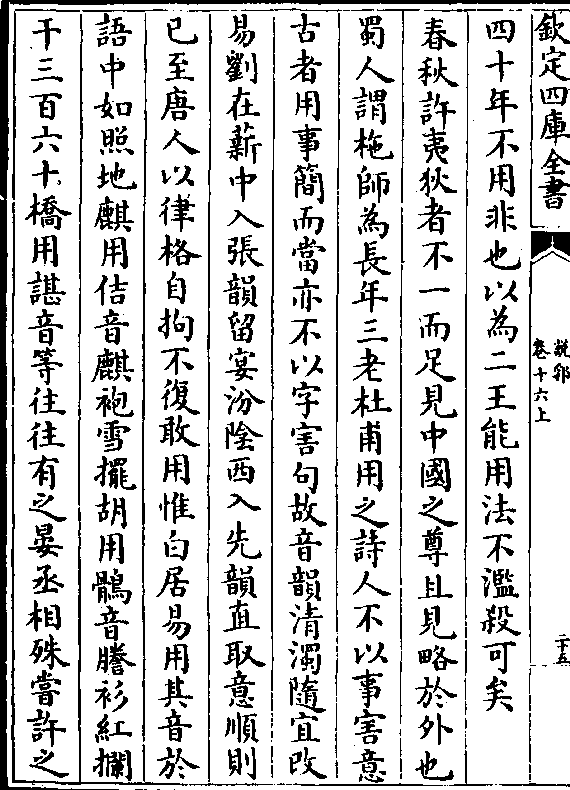 欽定四庫全書
說郛
卷十六上
二十五
四十年不用非也以為二王能用法不濫殺可矣
春秋許夷狄者不一而足見中國之尊且見略於外也
蜀人謂柂師為長年三老杜甫用之詩人不以事害意
古者用事簡而當亦不以字害句故音韻清濁隨宜改
易劉在薪中入張韻留宴汾陰西入先韻直取意順則
已至唐人以律格自拘不復敢用惟白居易用其音於
語中如照地麒用佶音麒袍雪擺胡用鶻音謄衫紅攔
干三百六十橋用諶音等往往有之晏丞相殊嘗許之